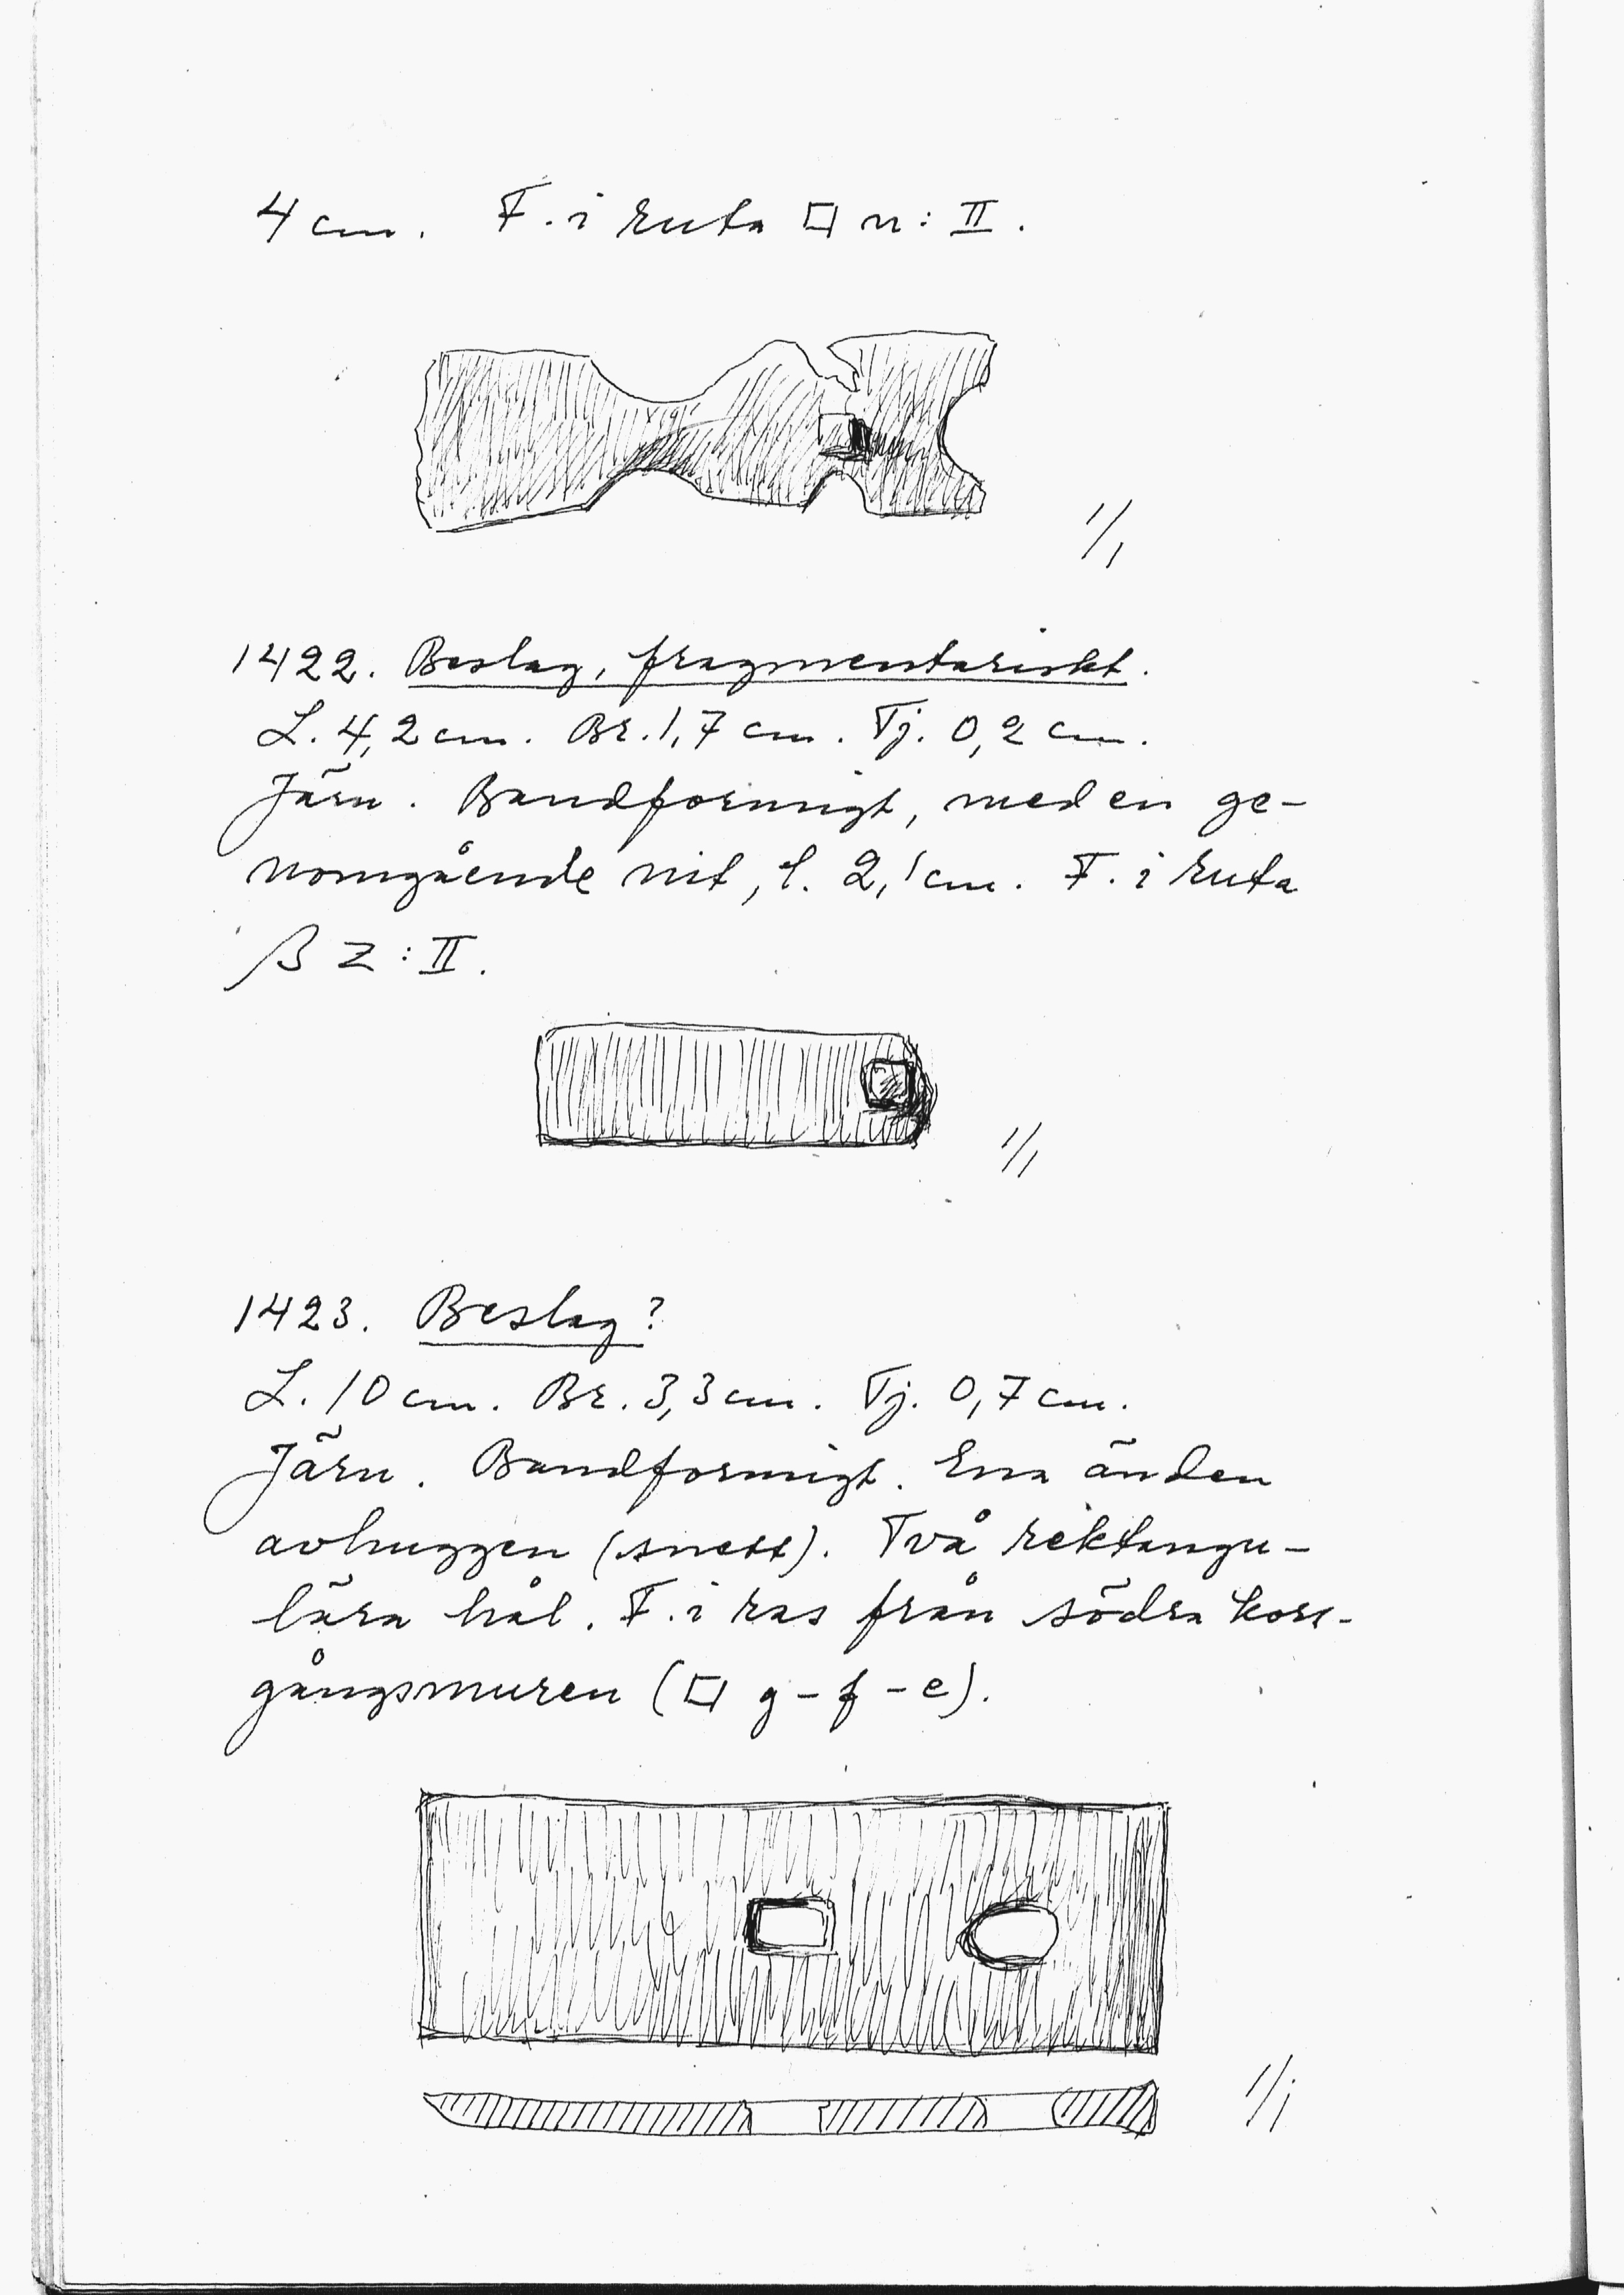 4 cm. F. i ruta □ n: II.
1/1
1422. Beslag, fragmentariskt.
L. 4,2 cm. Br. 1,7 cm. Tj. 0,2 cm.
Järn. Bandformigt, med en ge-
nomgående nit, l. 2,1 cm. F. i ruta
β z : II.
1/1
1423. Beslag?
L. 10 cm. Br. 3,3 cm. Tj. 0,7 cm.
Järn. Bandformigt. Ena änden
avhuggen (snett). Två rektangu-
lära hål. F. i ras från södra kors-
gångsmuren (□ g – f – e).
1/1